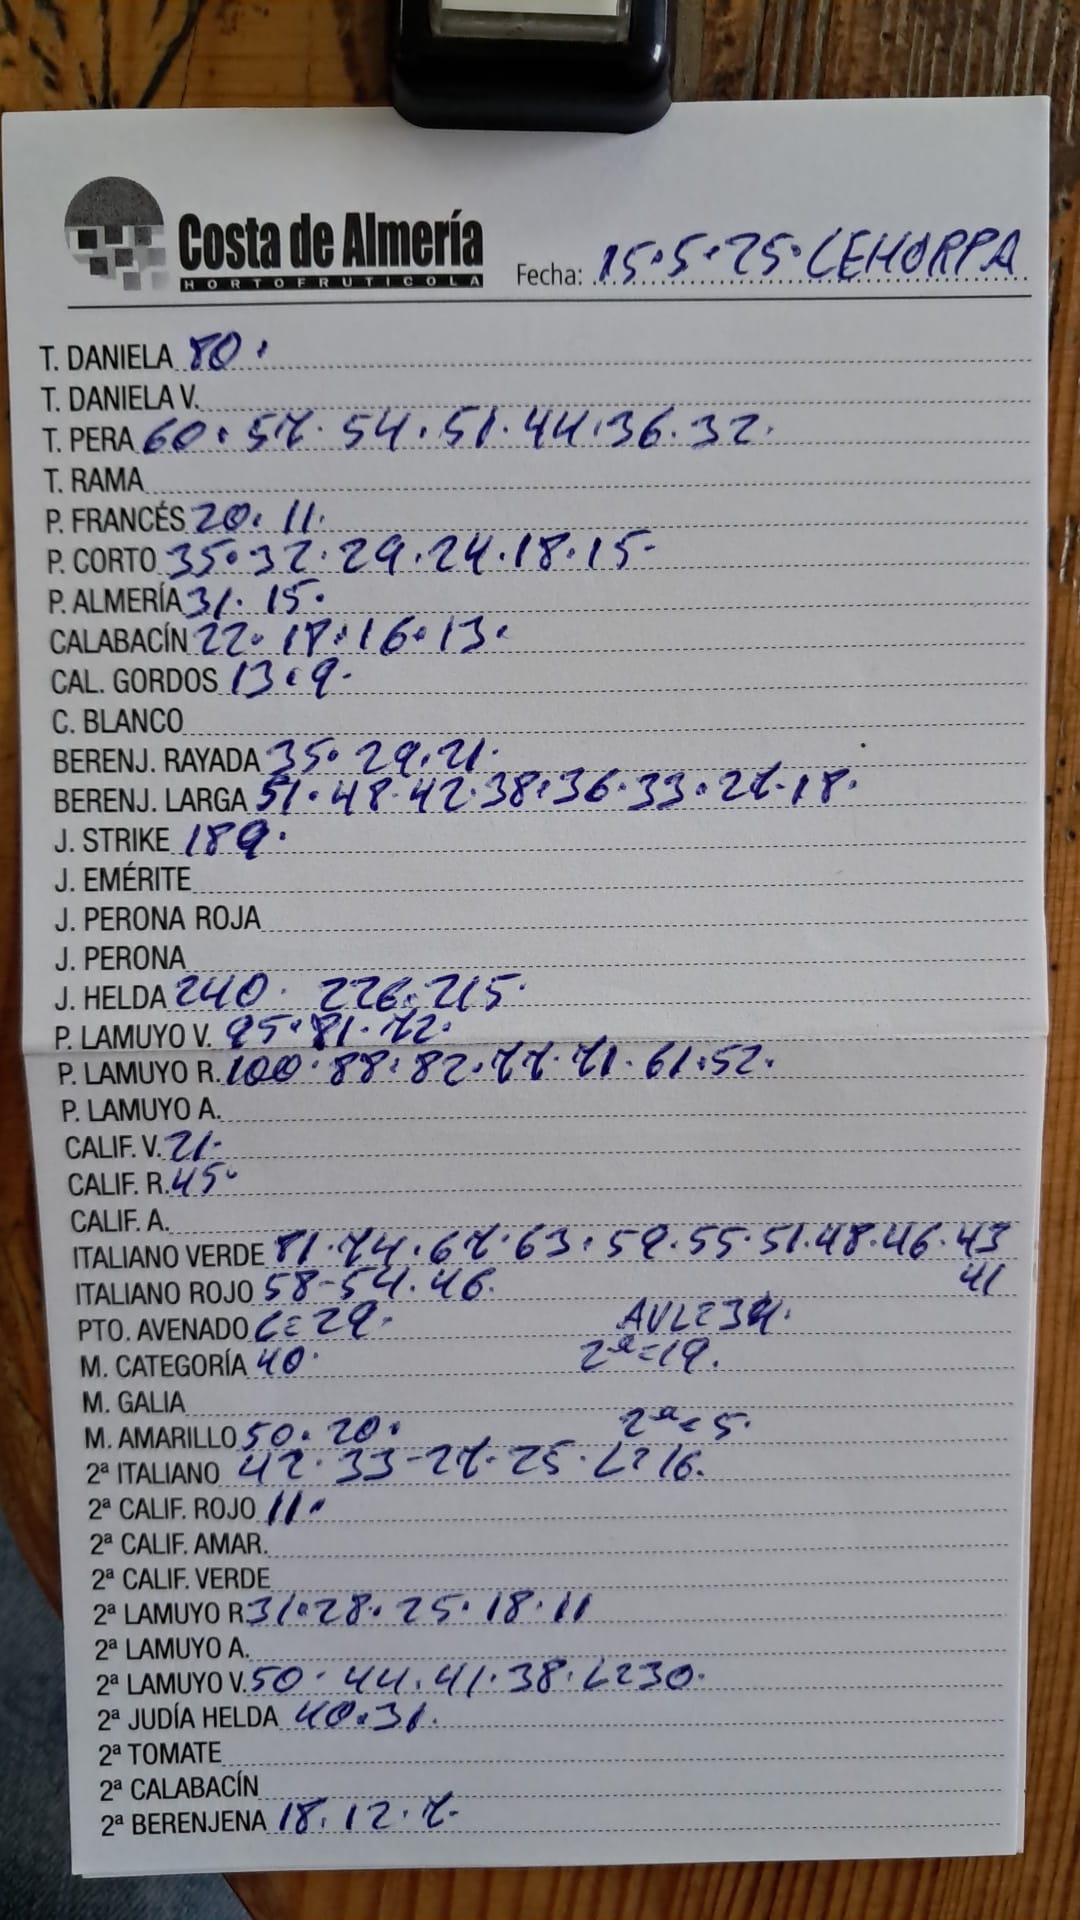 Costa de Almería
HORTOFRUTICOLA
Fecha: 15.5.25. CEHORPA
T. DANIELA 80.
T. DANIELA V.
T. PERA 60. 57. 54. 51. 44. 36. 32.
T. RAMA
P. FRANCÉS 20. 11.
P. CORTO 35. 32. 29. 24. 18. 15-
P. ALMERÍA 31. 15.
CALABACÍN 22. 18. 16. 13.
CAL. GORDOS 13. 9.
C. BLANCO
BERENJ. RAYADA 35. 29. 21.
BERENJ. LARGA 51. 48. 42. 38. 36. 33. 27. 18.
J. STRIKE 189.
J. EMÉRITE
J. PERONA ROJA
J. PERONA
J. HELDA 240. 226. 215.
P. LAMUYO V. 95. 81. 72.
P. LAMUYO R. 100. 88. 82. 77. 71. 61. 52.
P. LAMUYO A.
CALIF. V. 21.
CALIF. R. 45.
CALIF. A.
ITALIANO VERDE 81. 74. 67. 63. 59. 55. 51. 48. 46. 43
41
ITALIANO ROJO 58-54. 46.
PTO. AVENADO C=29. AVL=34.
M. CATEGORÍA 40. 2ª=19.
M. GALIA
M. AMARILLO 50. 20. 2ª=5.
2ª ITALIANO 42. 33-27. 25. L=16.
2ª CALIF. ROJO 11.
2ª CALIF. AMAR.
2ª CALIF. VERDE
2ª LAMUYO R 31. 28. 25. 18. 11
2ª LAMUYO A.
2ª LAMUYO V. 50. 44. 41. 38. L=30.
2ª JUDÍA HELDA 40. 31.
2ª TOMATE
2ª CALABACÍN
2ª BERENJENA 18. 12. 7.